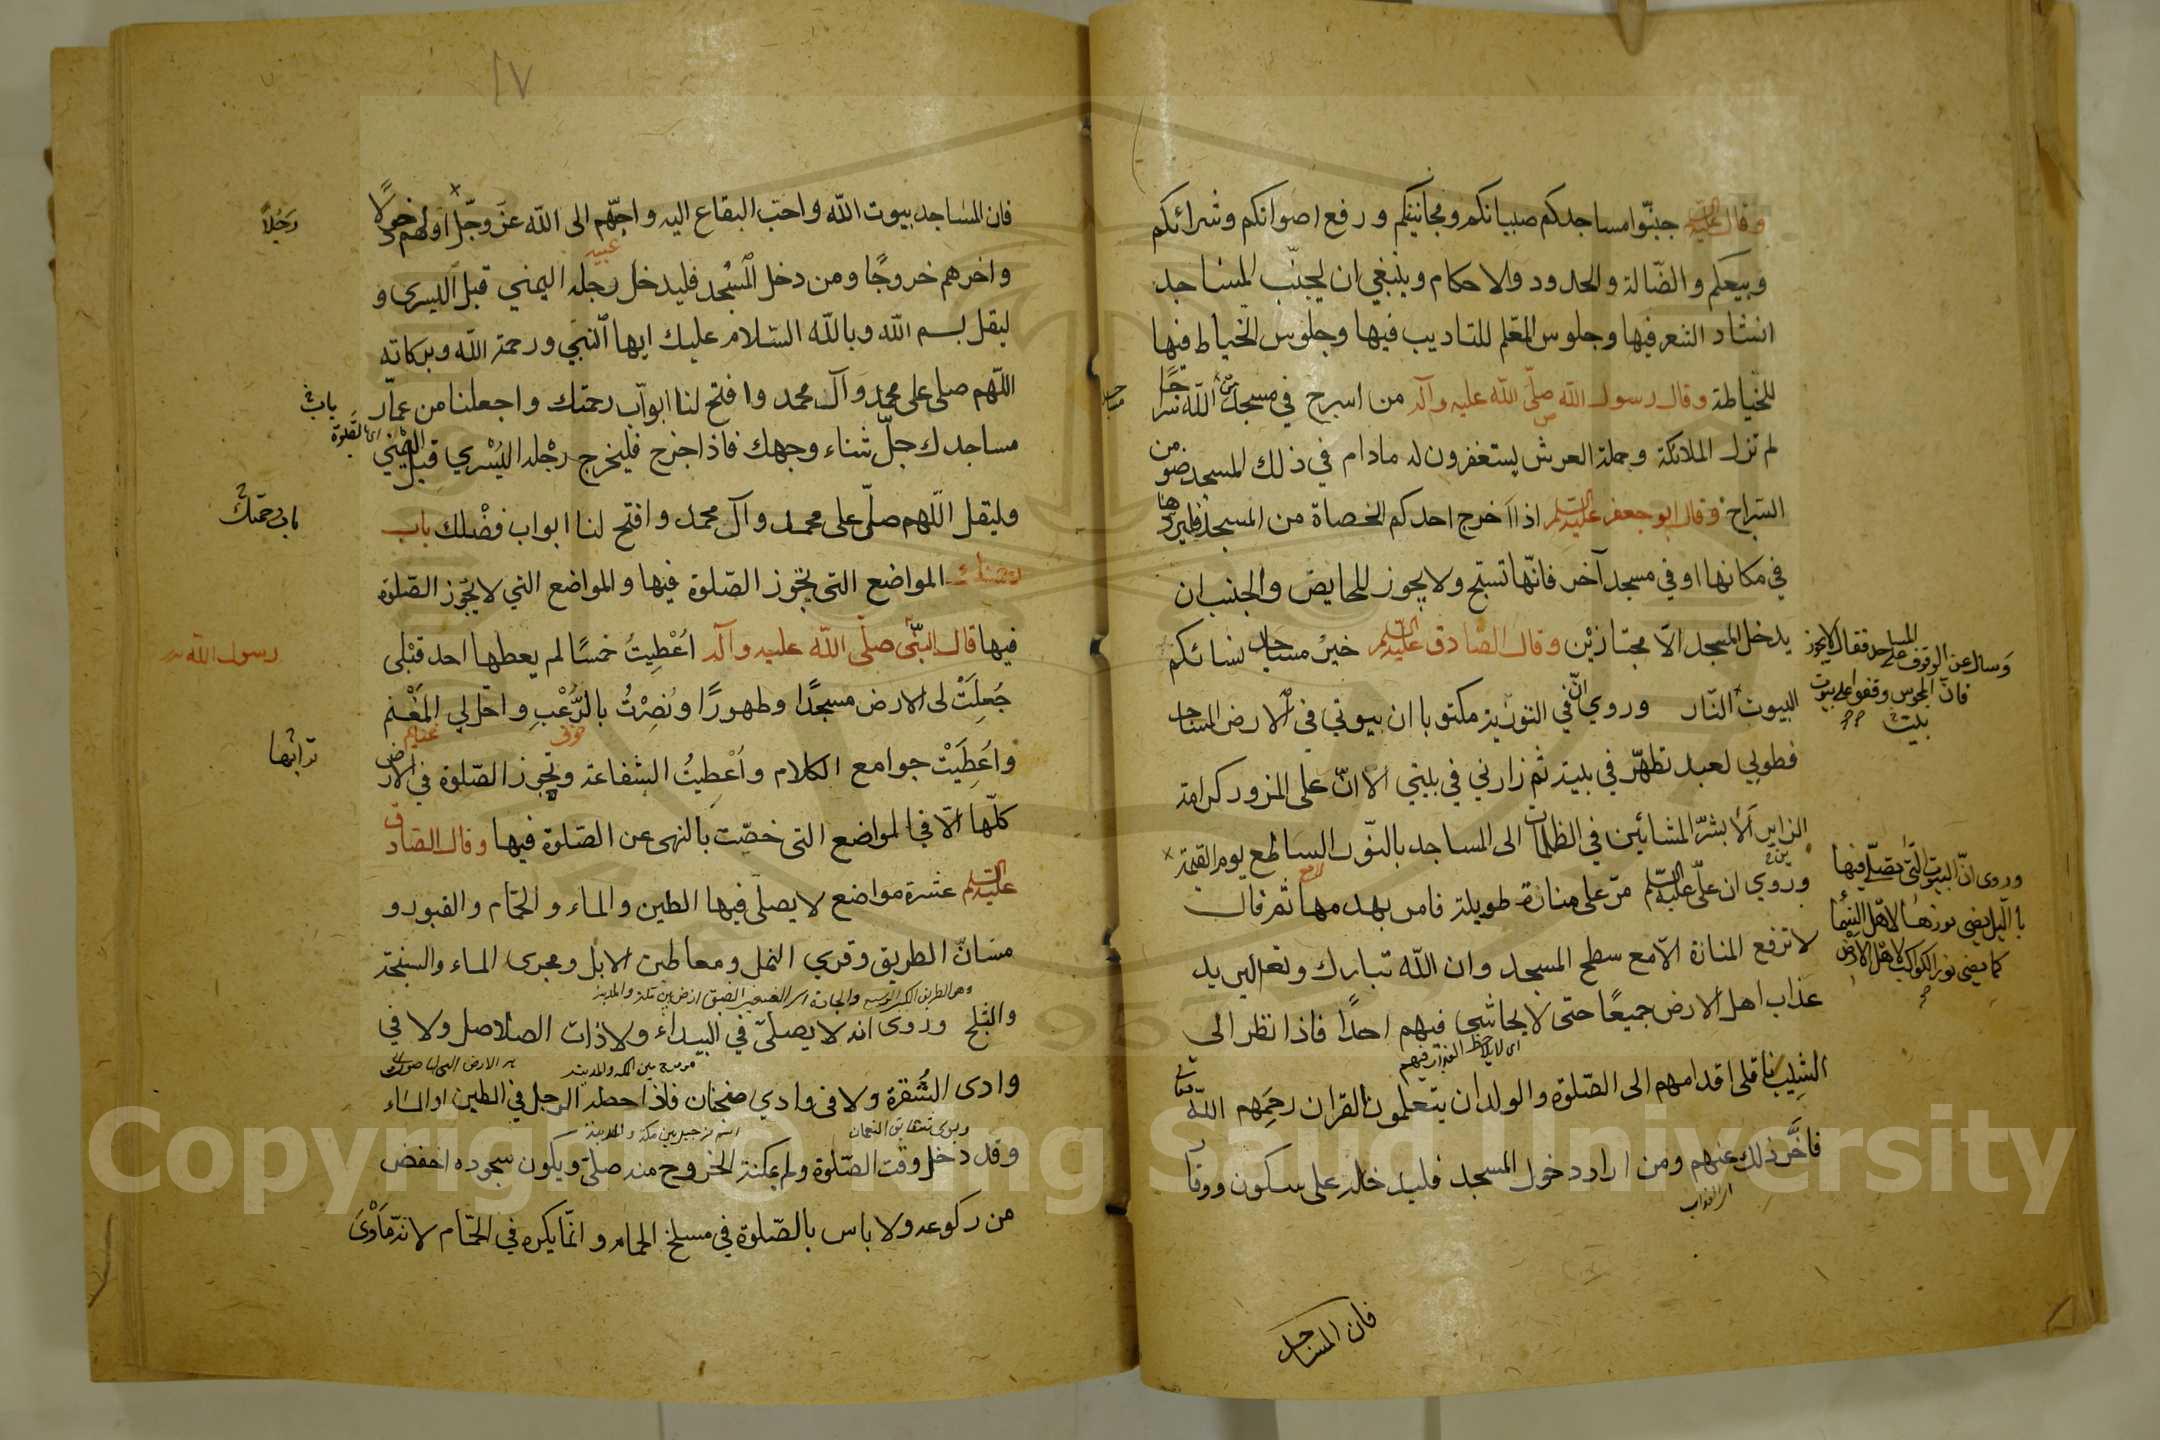 وقال عليه السلام جنّبوا مساجدكم صبيانكم ومجانينكم ورفع اصواتكم وشرائكم
وبيعكم والضّالة والحدود والاحكام وينبغي ان يجنّب المساجد
انشاد الشعر فيها وجلوس المعلّم للتاديب فيها وجلوس الخياط فيها
للخياطة وقال رسول الله صلّى الله عليه وآله من اسرج في مسجد من مساجد الله سراجًا
لم تزل الملائكة وحملة العرش يستغفرون له مادام في ذلك المسجد ضوء من
السّراج وقال ابو جعفر عليه السلم اذا اخرج احدكم الحصاة من المسجد فليردها
في مكانها او في مسجد آخر فانّها تسبّح ولا يجوز للحايض والجنب ان
يدخل المسجد الّا مجتازين وقال الصّادق عليه السلم خير مساجد نسائكم
البيوت
وسال عن الوقوف على المساجد فقال لا يجوز
فانّ المجوس وقفوا على بيوت
النّار وروي انّ في التورية مكتوبا ان بيوتي في الارض المساجد
فطوبى لعبد تطهّر في بيته ثم زارني في بيتي الا انّ على المزور كرامة
الزاير الا بشّر المشائين في الظلمات الى المساجد بالنّور الساطع يوم القيمة
وروى انّ البيوت الّتى يصلّى فيها
بالّيل يضئ نورها لاهل السّماء
كما يضئ نور الكواكب لاهل الارض
وروي ان عليّا عليه السلم مرّ على منارة طويلة فامر بهدمها ثم قال
لا ترفع المنارة الّا مع سطح المسجد وان الله تبارك وتعالى يريد
عذاب اهل الارض جميعًا حتى لا يحاشي فيهم احدًا فاذا نظر الى
الشيب ناقلى اقدامهم الى الصّلوة والولدان يتعلمون القران رحمهم الله
فاخّر ذلك عنهم ومن اراد دخول المسجد فليدخل على سكون ووقار
فان المساجد
١٧
فان المساجد بيوت الله واحبّ البقاع اليه واحبّهم الى الله عزّ وجلّ اولهم دخولا
رجلًا
واخرهم خروجًا ومن دخل المسجد فليدخل رجله اليمني قبل اليسرى و
ليقل بسم الله وبالله السّلام عليك ايها النّبي ورحمة الله وبركاته
اللّهم صلى على محمد وآل محمد وافتح لنا ابواب رحمتك واجعلنا من عمّار
مساجدك جلّ ثناء وجهك فاذا خرج فليخرج رجله اليسري قبل اليمني
وليقل اللّهم صلّى على محمد وآل محمد وافتح لنا ابواب فضلك باب
المواضع التى يجوز الصّلوة فيها والمواضع التي لا يجوز الصّلوة
فيها قال النّبىّ صلّى الله عليه وآله اعطيت خمسًا لم يعطها احد قبلى
رسول الله
جعلت لى الارض مسجدًا وطهورًا ونصرت بالرّعب واحلّ لي المغنم
ترابها
واعطيت جوامع الكلام واعطيت الشفاعة وتجوز الصّلوة في الارض
كلّها الّا في المواضع التى خصّت بالنهى عن الصّلوة فيها وقال الصّادق
عليه السلم عشرة مواضع لا يصلّى فيها الطين والماء والحمّام والقبور و
مسانّ الطريق وقري النمل ومعاطن الابل ومجرى الماء والسبخة
والثلج وروى انه لا يصلّى في البيداء ولا ذات الصّلاصل ولا في
وادى الشّقرة ولا فى وادي ضجنان فاذا حصل الرجل في الطين او الماء
وقد دخل وقت الصّلوة ولم يمكنه الخروج منه صلّى ويكون سجوده اخفض
من ركوعه ولا باس بالصّلوة في مسلخ الحمام وانّما يكره في الحمّام لانّه مأوى